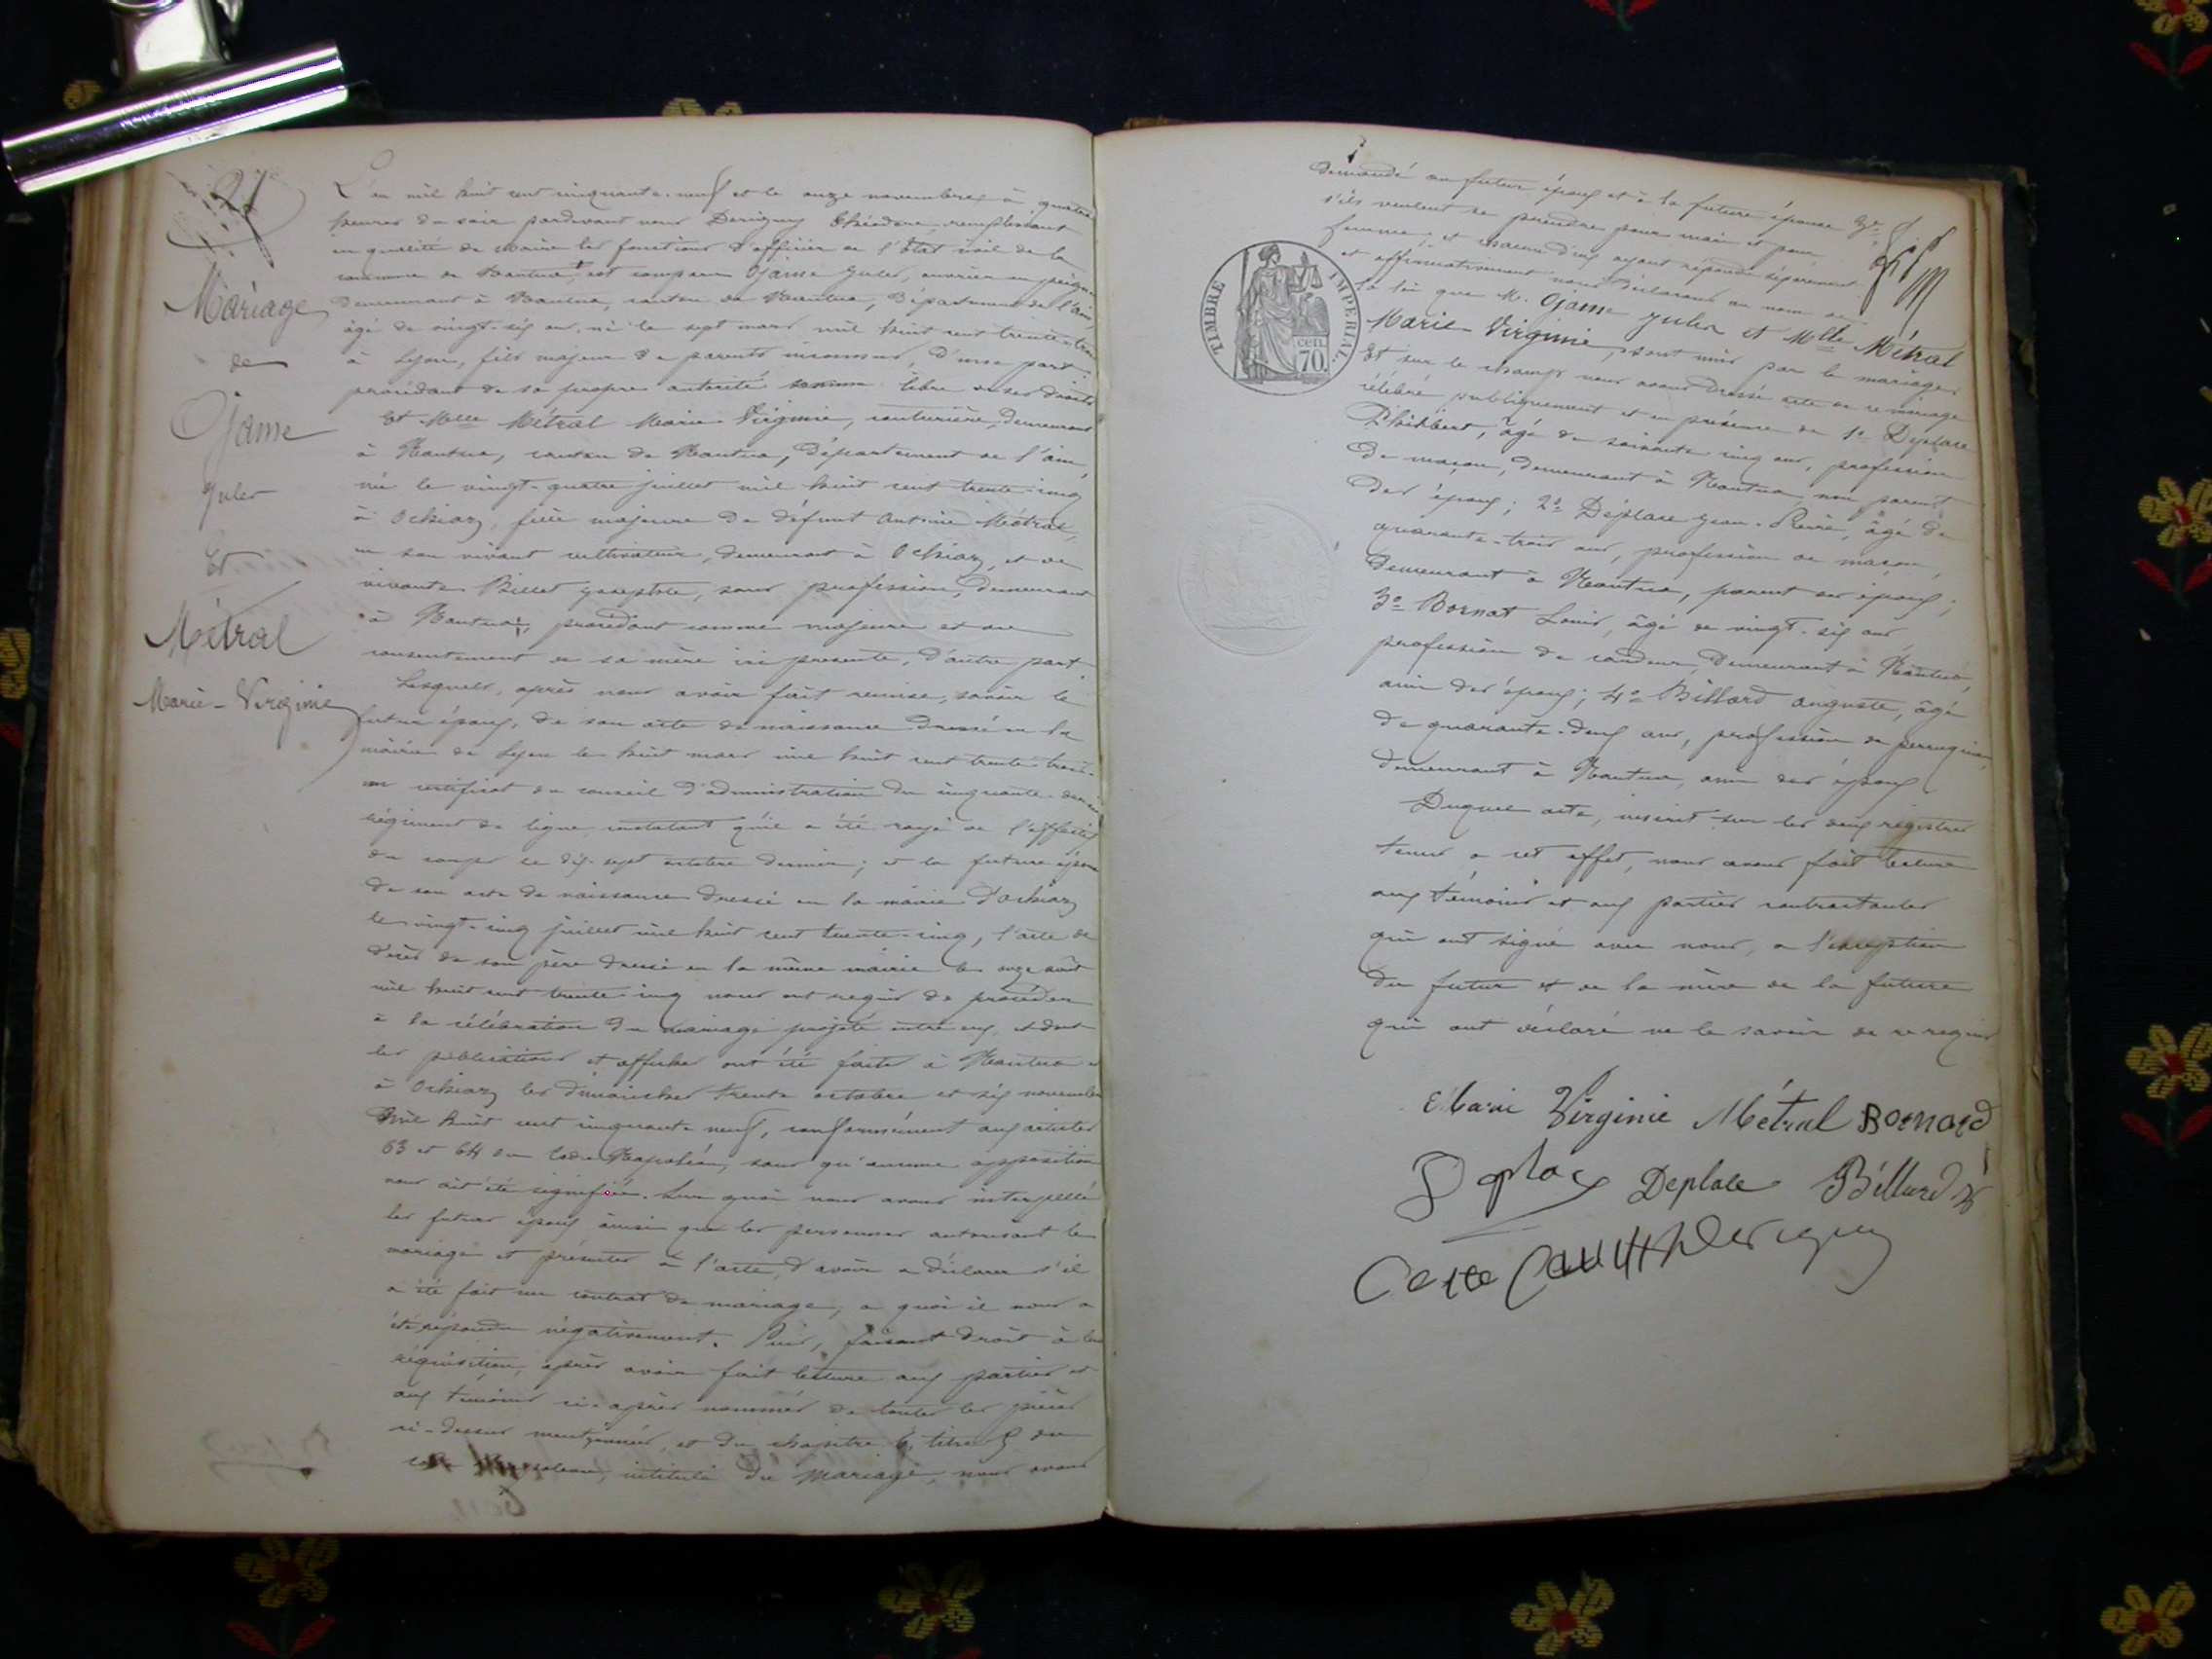 21
Mariage
de
Ojame
Jules
Et
Métral
Marie-Virginie
L'an mil huit cent cinquante-neuf et le onze novembre, à quatre
heures du soir pardevant nous Derigny Théodore remplissant
en qualité de maire les fonctions d'officier de l'État civil de la
commune de Nantua, est comparu Ojame Jules, ouvrier en peignes
demeurant à Nantua, canton de Nantua, Département de l'Ain,
âgé de vingt-six ans, né le sept mars mil huit cent trente-trois
à Lyon, fils majeur de parents inconnus, d'une part
procédant de sa propre autorité comme libre de ses droits
Et Melle Métral Marie-Virginie, couturière, demeurant
à Nantua, canton de Nantua, Département de l'ain,
née le vingt-quatre juillet mil huit cent trente-cinq
à Ochiaz, fille majeure de défunt Antoine Métral,
en son vivant cultivateur, demeurant à Ochiaz, et de
vivante Billet Josephte, sans profession, demeurant
à Nantua, procédant comme majeure et du
consentement de sa mère ici présente, d'autre part
Lesquels, après nous avoir fait remise, savoir le
futur époux, de son acte de naissance dressé en la
mairie de Lyon le huit mars mil huit cent trente-trois,
un certificat du conseil d'administration du cinquante-deuxième
régiment de ligne constatant qu'il a été rayé de l'effectif
du corps le dix-sept octobre dernier; et la future épouse
de son acte de naissance dressé en la mairie d'ochiaz
le vingt-cinq juillet mil huit cent trente-cinq, l'acte de
décès de son père dressé en la même mairie le onze août
mil huit cent trente-cinq nous ont requis de procéder
à la célébration du mariage projeté entre eux, et dont
les publications et affiches ont été faites à Nantua et
à Ochiaz les dimanches trente octobre et six novembre
mil huit cent cinquante neuf, conformément aux articles
63 et 64 du Code Napoléon, sans qu'aucune opposition
nous ait été signifiée. Sur quoi nous avons interpellé
les futurs époux ainsi que les personnes autorisant le
mariage et présentes à l'acte, d'avoir à déclarer s'il
a été fait un contrat de mariage, a quoi il nous a
été répondu négativement. Puis, faisant droit à leur
réquisition, après avoir fait lecture aux parties et
aux témoins ci-après nommés de toutes les pièces
ci-dessus mentionnées, et du chapitre 6, titre 5 du
code Napoléon, intitulé du Mariage, nous avons
demandé au futur époux et à la future épouse
s'ils veulent se prendre pour mari et pour
femme, et chacun d'eux ayant répondu séparément
et affirmativement nous déclarons au nom de
la loi que M. Ojame Jules et Melle Métral
Marie-Virginie, sont unis par le mariage
Et sur le champ nous avons dressé acte de ce mariage
célébré publiquement et en présence de 1º Deplace
Philibert, âgé de soixante cinq ans, profession
de maçon, demeurant à Nantua, non parent
des époux; 2º Déplace Jean-Pierre, âgé de
quarante-trois ans, profession de maçon,
demeurant à Nantua, parent des époux;
3º Bornat Louis, âgé de vingt-six ans,
profession de cordeur, demeurant à Nantua,
ami des époux; 4º Billard auguste, âgé
de quarante-deux ans, profession de perruquier,
demeurant à Nantua, ami des époux
Duquel acte, inscrit sur les deux registres
tenus a cet effet, nous avons fait lecture
aux témoins et aux parties contractantes
qui ont signé avec nous, a l'exception
du futur et de la mère de la future
qui ont déclaré ne le savoir de ce requis
TIMBRE IMPERIAL.
70 cen.
Marie Virginie Métral Bornard
Deplace Deplace Billard
Derigny